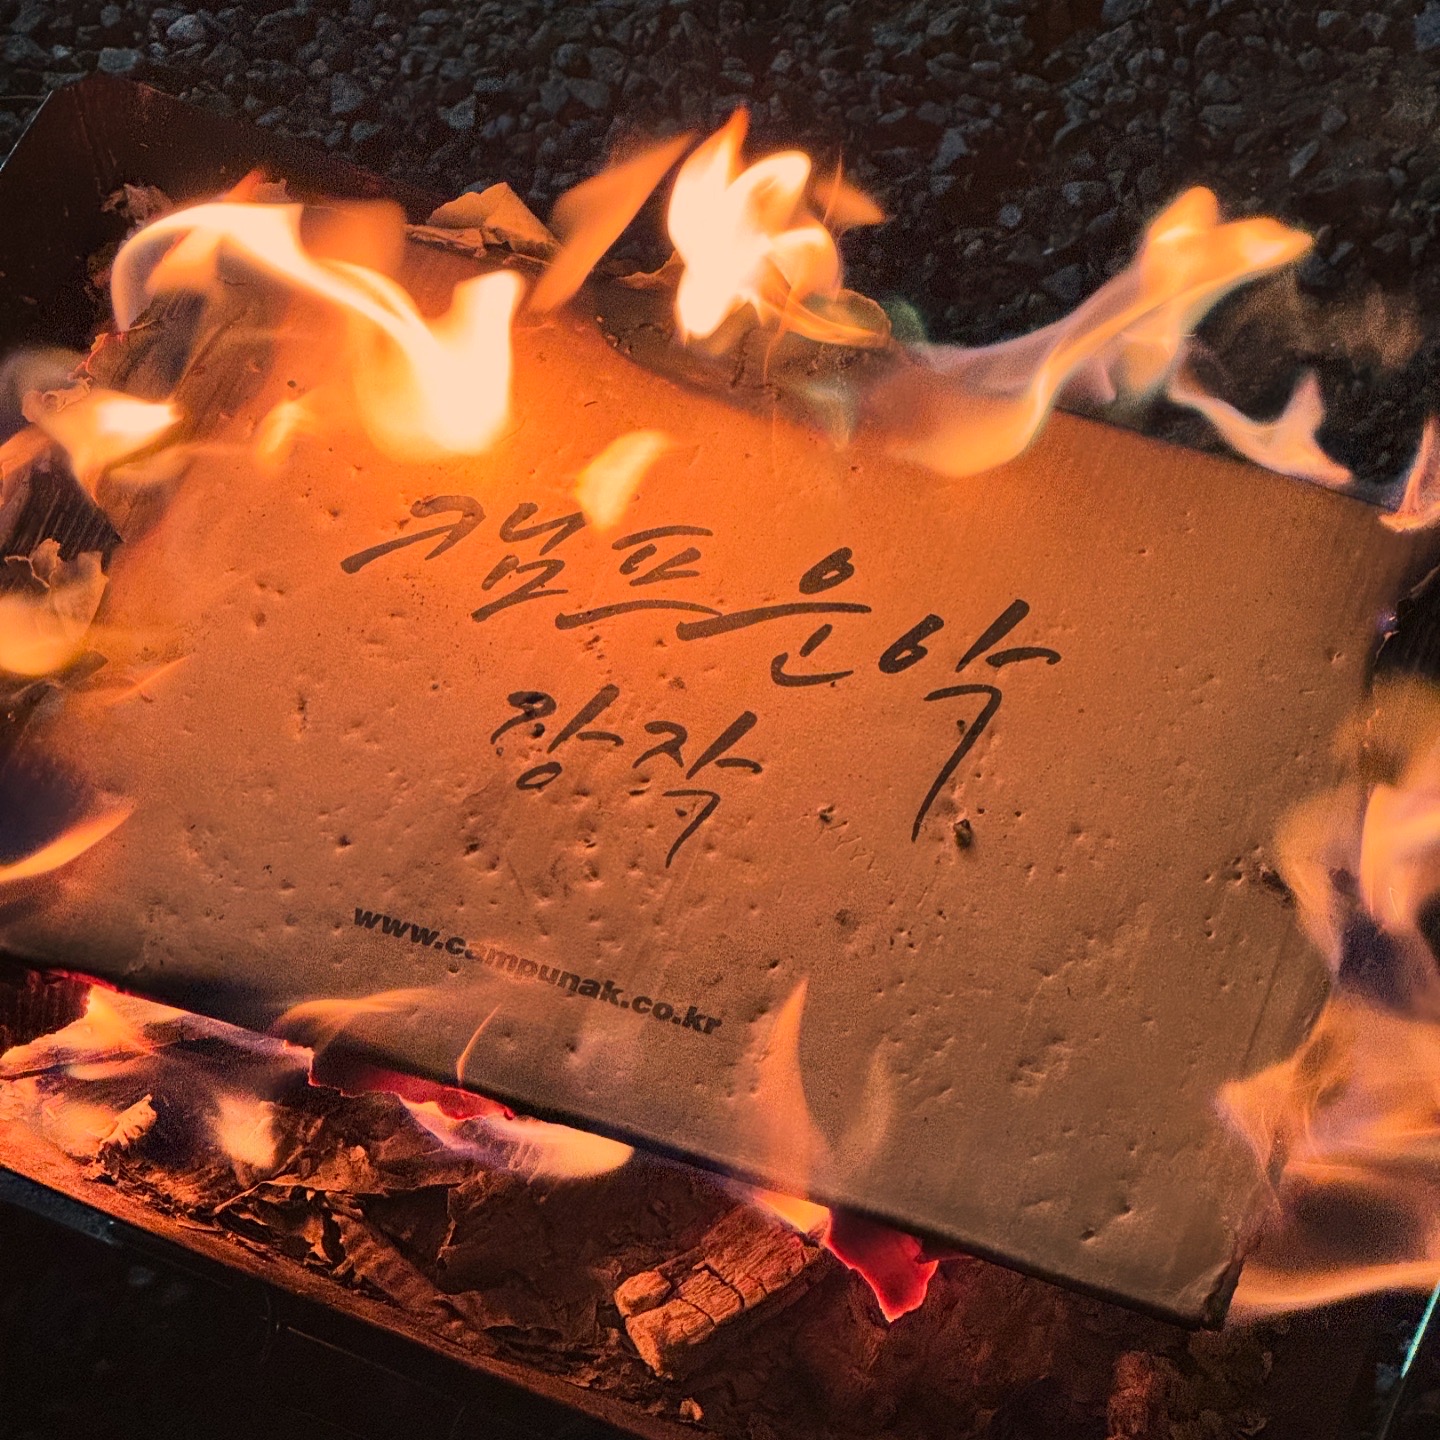 캠프운악
장작
www.campunak.co.kr